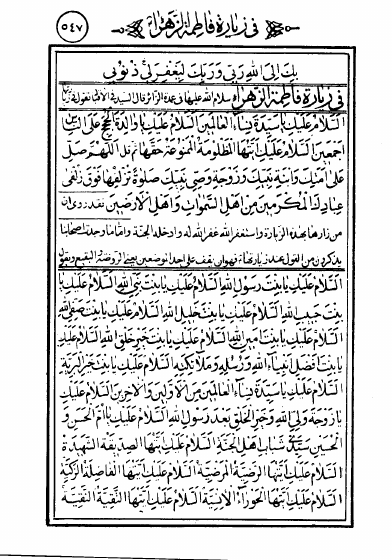 في زيارة فاطمة الزهراء ٥٤٧
بك إلى الله ربي وربك ليغفر لي ذنوبي
في زيارة فاطمة الزهراء سلام الله عليها في عدة الزائر قال السيدة
السلام عليك يا سيدة نساء العالمين السلام عليك يا والدة الحجج على الناس
اجمعين السلام عليك ايتها المظلومة الممنوعة حقها ثم قل اللهم صل
على امتك وابنة نبيك وزوجة وصي نبيك صلوة تزلفها فوق زلفى
عبادك المكرمين من اهل السموات واهل الارضين فقد روي ان
من زارها بهذه الزيارة واستغفر الله غفر الله له وادخله الجنة واما ما وجدت اصحابنا
يذكرون من القول عند زيارتها فهو ان يقف على احد الموضعين يعني الروضة او البقيع ويقول
السلام عليك يا بنت رسول الله السلام عليك يا بنت نبي الله السلام عليك يا
بنت حبيب الله السلام عليك يا بنت خليل الله السلام عليك يا بنت صفي الله
السلام عليك يا بنت امين الله السلام عليك يا بنت خير خلق الله السلام عليك
يا بنت افضل انبياء الله ورسله وملائكته السلام عليك يا بنت خير البرية
السلام عليك يا سيدة نساء العالمين من الاولين والاخرين السلام عليك
يا زوجة ولي الله وخير الخلق بعد رسول الله السلام عليك يا ام الحسن و
الحسين سيدي شباب اهل الجنة السلام عليك ايتها الصديقة الشهيدة
السلام عليك ايتها الرضية المرضية السلام عليك ايتها الفاضلة الزكية
السلام عليك ايتها الحوراء الانسية السلام عليك ايتها التقية النقية